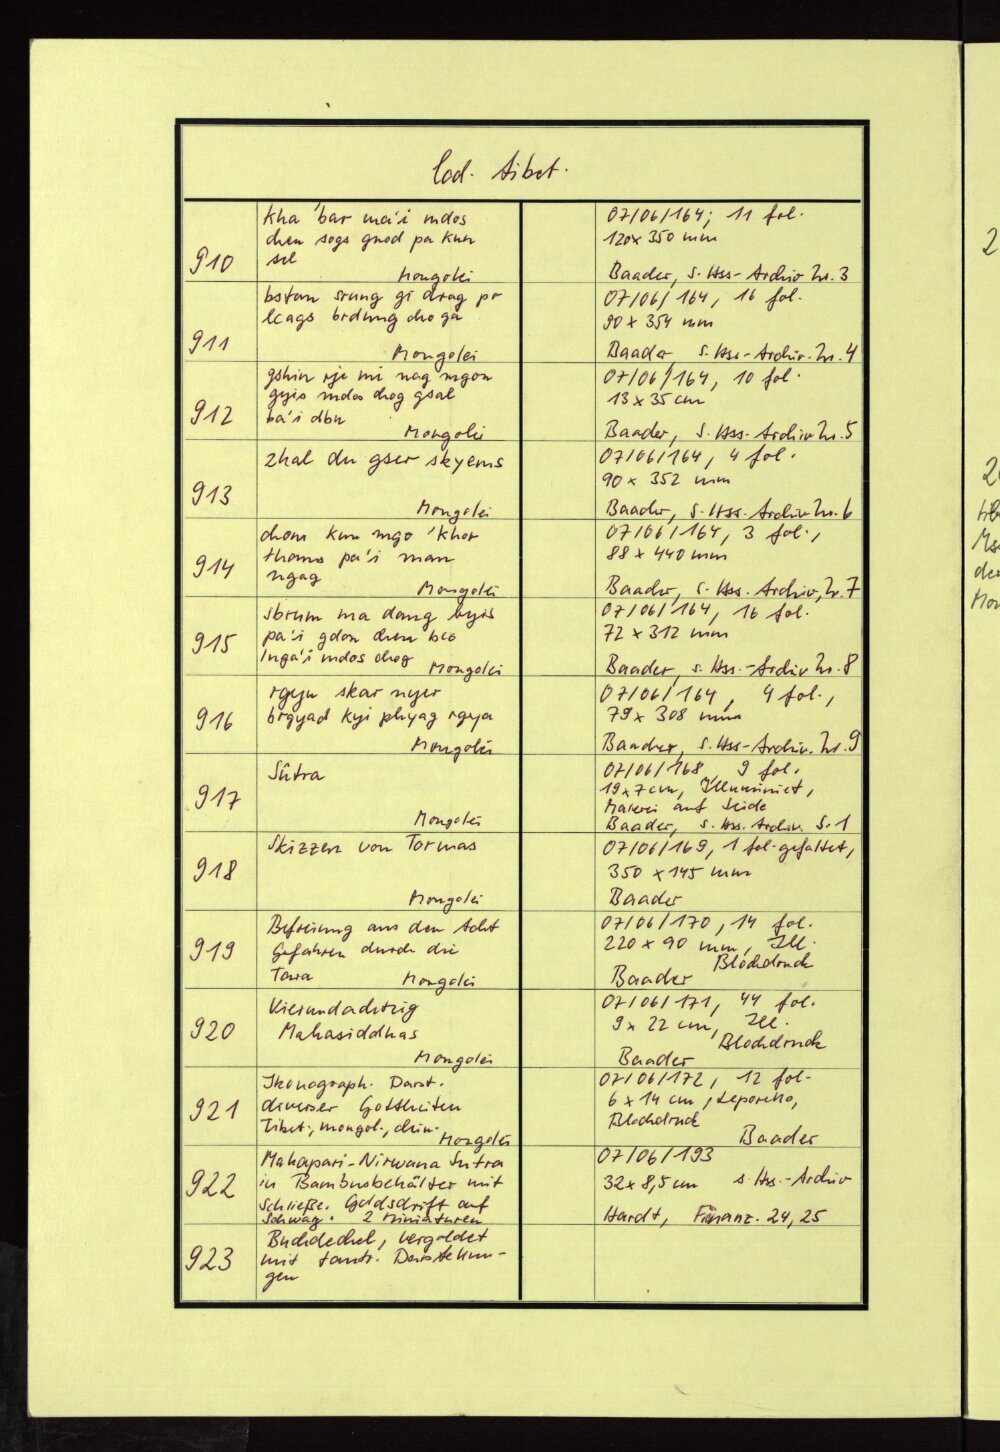 Cod. tibet.
910
kha 'bar ma'i mdos
chen sogs gnod pa kun
sel
Mongolei
07/06/164; 11 fol.
120x350 mm
Baader, s. Hss-Archiv Nr. 3
911
bstan srung gi drag po
lcags brdung cho ga
Mongolei
07/06/164, 16 fol.
90 x 354 mm
Baader, s. Hss-Archiv. Nr. 4
912
gshin rje mi nag mgon
gyis mdos chog gsal
ba'i dbu
Mongolei
07/06/164, 10 fol.
13 x 35 cm
Baader, s. Hss. Archiv Nr. 5
913
zhal du gser skyems
Mongolei
07/06/164, 4 fol.
90 x 352 mm
Baader, s. Hss. Archiv Nr. 6
914
chom kun mgo 'khor
thams pa'i man
ngag
Mongolei
07/06/164, 3 fol.,
88 x 440 mm
Baader, s. Hss. Archiv, Nr. 7
915
sbrum ma dang byis
pa'i gdon chen bco
lnga'i mdos chog
Mongolei
07/06/164, 16 fol.
72 x 312 mm
Baader, s. Hss.-Archiv Nr. 8
916
rgyu skar nyer
brgyad kyi phyag rgya
Mongolei
07/06/164, 4 fol.,
79 x 308 mm
Baader, s. Hss-Archiv. Nr. 9
917
Sûtra
Mongolei
07/06/168 9 fol.
19x7 cm, Illuminiert,
Malerei auf Seide
Baader, s. Hss. Archiv. S. 1
918
Skizzen von Tormas
Mongolei
07/06/169, 1 fol. gefaltet,
350 x 145 mm
Baader
919
Befreiung aus den Acht
Gefahren durch die
Tara
Mongolei
07/06/170, 14 fol.
220 x 90 mm, Ill.
Blockdruck
Baader
920
Vierundachtzig
Mahasiddhas
Mongolei
07/06/171, 44 fol.
9 x 22 cm, Ill.
Blockdruck
Baader
921
Ikonograph. Darst.
diverser Gottheiten
Tibet., mongol., chin.
Mongolei
07/06/172, 12 fol.
6 x 14 cm, Leporello,
Blockdruck
Baader
922
Mahapari-Nirwana Sutra
in Bambusbehälter mit
Schließe. Goldschrift auf
Schwarz. 2 Miniaturen
07/06/193
32x8,5 cm s. Hss.-Archiv
Hardt, Finanz. 24, 25
923
Buchdeckel, vergoldet
mit tantr. Darstellun-
gen